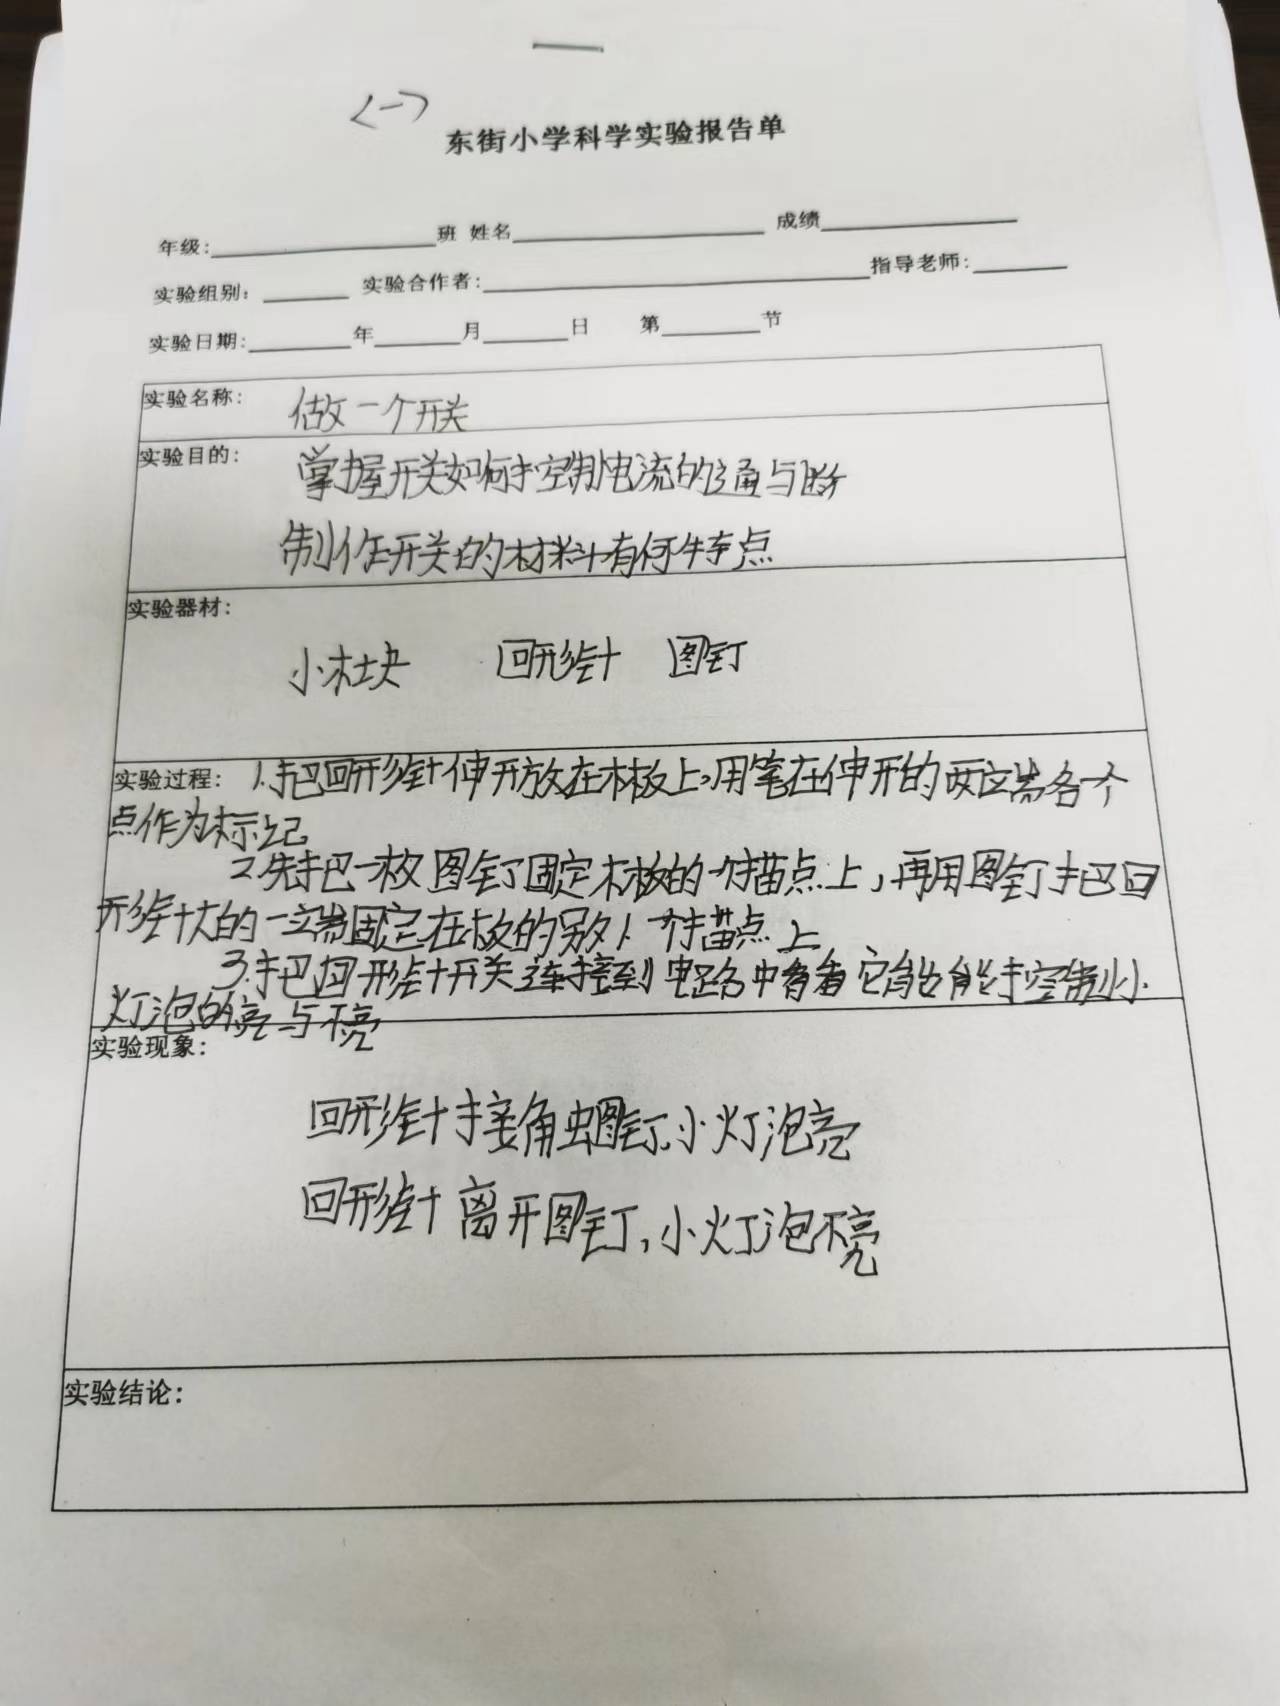 <一>
东街小学科学实验报告单
年级:____班 姓名____ 成绩____
实验组别:____ 实验合作者:____指导老师:____
实验日期:____年____月____日 第____节
实验名称: 做一个开关
实验目的: 掌握开关如何控制电流的通与断
制作开关的材料有何特点
实验器材:
小木块 回形针 图钉
实验过程: 1.把回形针伸开放在木板上,用笔在伸开的两端各个
点作为标记
2.先把一枚图钉固定木板的一个描点上,再用图钉把回
形针大的一端固定在板的另外一个描点上
3.把回形针开关连接到电路中看看它能能控制小
灯泡的亮与不亮
实验现象:
回形针接触图钉,小灯泡亮
回形针离开图钉,小灯泡不亮
实验结论: